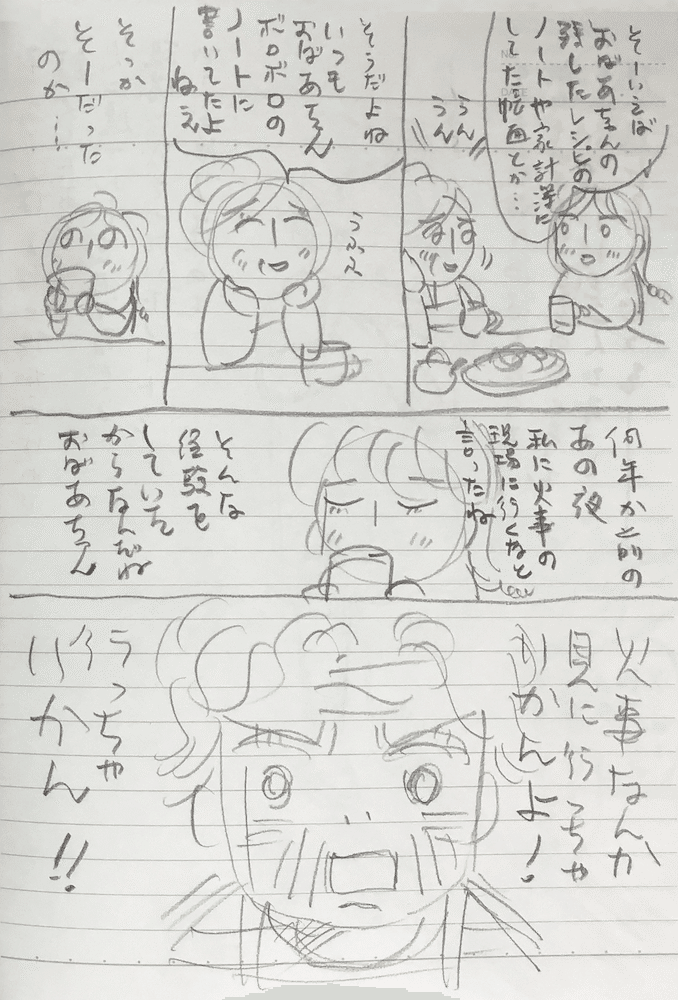 そーいえば
おばあちゃんの
残したレシピの
ノートや家計簿に
してた帳面とか…
うん
うん
そうだよね
いつも
おばあちゃん
ボロボロの
ノートに
書いてたよ
ねえ
うふふ
そっか
そーだった
のか…
何年か前の
あの夜
私に火事の
現場に行くなと
言ったね
そんな
経験を
していた
からなんだね
おばあちゃん
火事なんか
見に行っちゃ
いかんよ!
行っちゃ
いかん!!